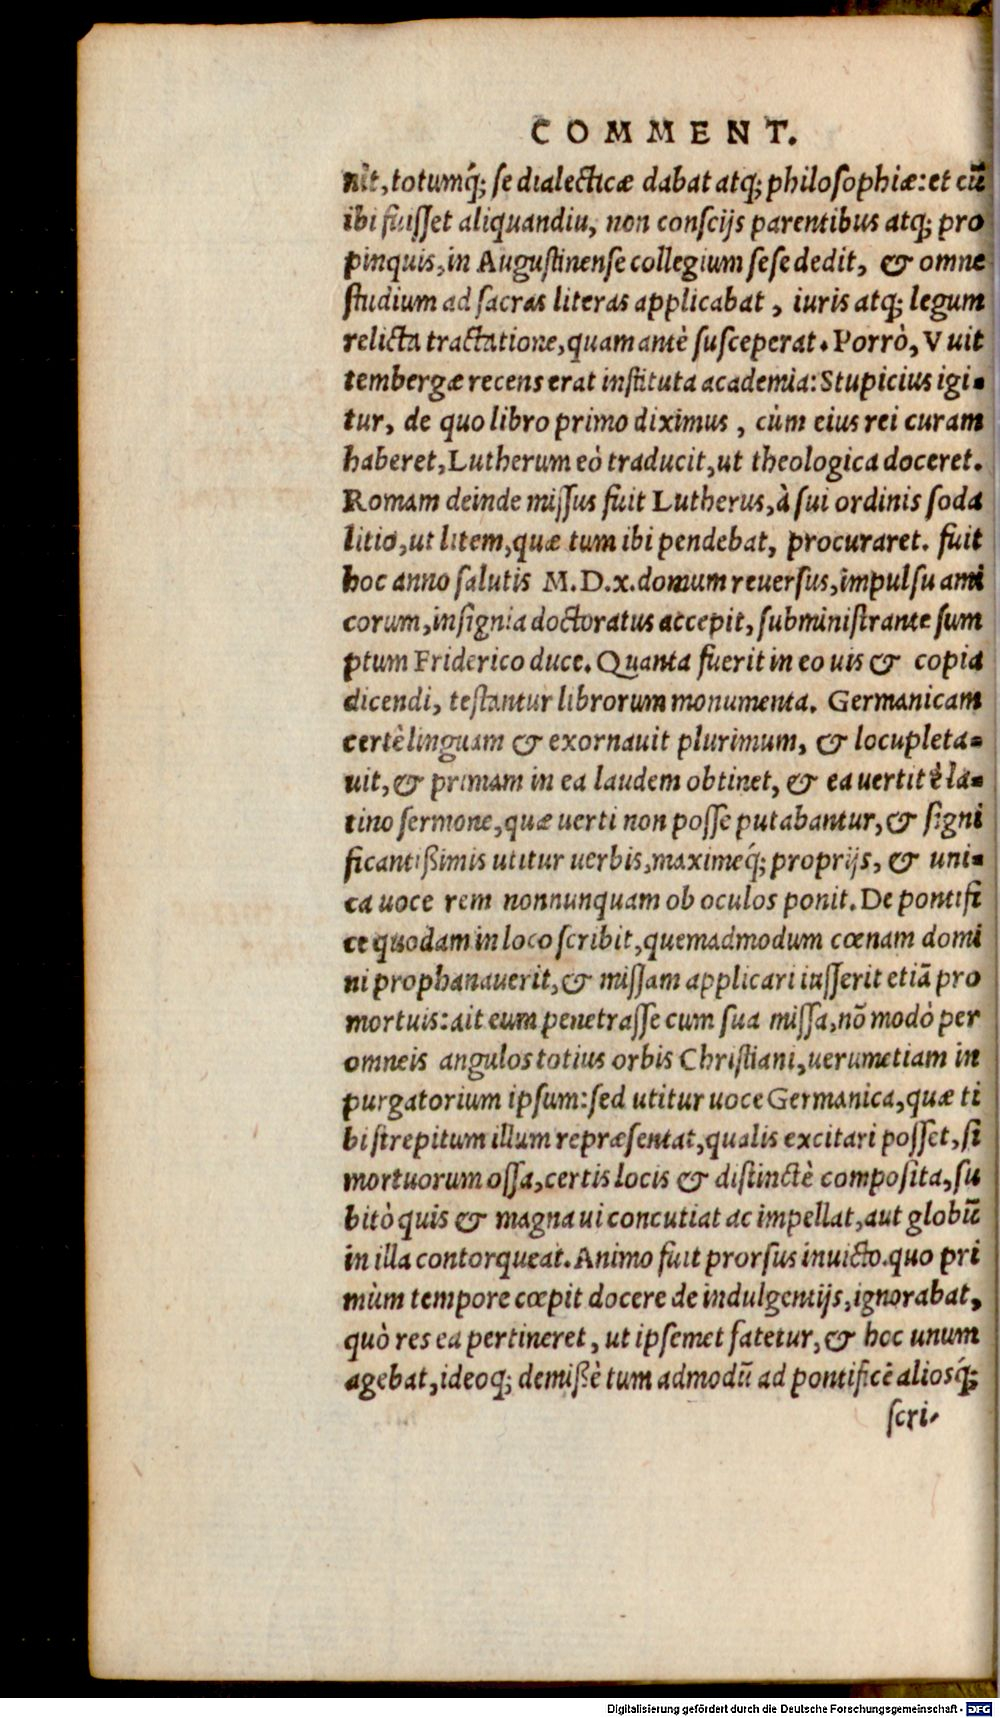 COMMENT.
nit, totumq́; se dialecticæ dabat atq; philosophiæ: et cū
ibi fuisset aliquandiu, non conscijs parentibus atq; pro
pinquis, in Augustinense collegium sese dedit, & omne
studium ad sacras literas applicabat, iuris atq; legum
relicta tractatione, quam antè susceperat. Porrò, Vuit
tembergæ recens erat instituta academia: Stupicius igi-
tur, de quo libro primo diximus, cùm eius rei curam
haberet, Lutherum eò traducit, ut theologica doceret.
Romam deinde missus fuit Lutherus, à sui ordinis soda
litio, ut litem, quæ tum ibi pendebat, procuraret. fuit
hoc anno salutis M.D.x. domum reuersus, impulsu ami
corum, insignia doctoratus accepit, subministrante sum
ptum Friderico duce. Quanta fuerit in eo uis & copia
dicendi, testantur librorum monumenta. Germanicam
certè linguam & exornauit plurimum, & locupleta-
uit, & primam in ea laudem obtinet, & ea vertit è la-
tino sermone, quæ uerti non posse putabantur, & signi
ficantißimis utitur uerbis, maximeq́; proprijs, & uni-
ca uoce rem nonnunquam ob oculos ponit. De pontifi
ce quodam in loco scribit, quemadmodum cœnam domi
ni prophanauerit, & missam applicari iusserit etiā pro
mortuis: ait eum penetrasse cum sua missa, nō modò per
omneis angulos totius orbis Christiani, uerumetiam in
purgatorium ipsum: sed utitur uoce Germanica, quæ ti
bi strepitum illum repræsentat, qualis excitari posset, si
mortuorum ossa, certis locis & distinctè composita, su
bitò quis & magna ui concutiat ac impellat, aut globū
in illa contorqueat. Animo fuit prorsus inuicto. quo pri
mùm tempore cœpit docere de indulgentijs, ignorabat,
quò res ea pertineret, ut ipsemet fatetur, & hoc unum
agebat, ideoq; demißè tum admodū ad pontificē aliosq́;
scri-
Digitalisierung gefördert durch die Deutsche Forschungsgemeinschaft - DFG